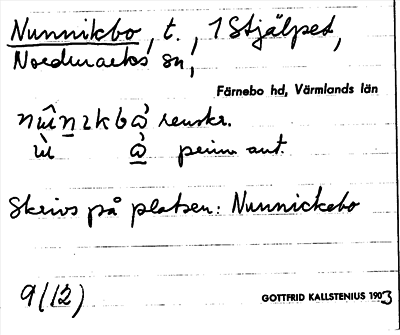 Nunnikbo, t., 1 Stjälpet,
Nordmarks sn,
Färnebo hd, Värmlands län
renskr.
prim. aut.
Skrivs på platsen: Nunnickebo
9(12)
GOTTFRID KALLSTENIUS 1903